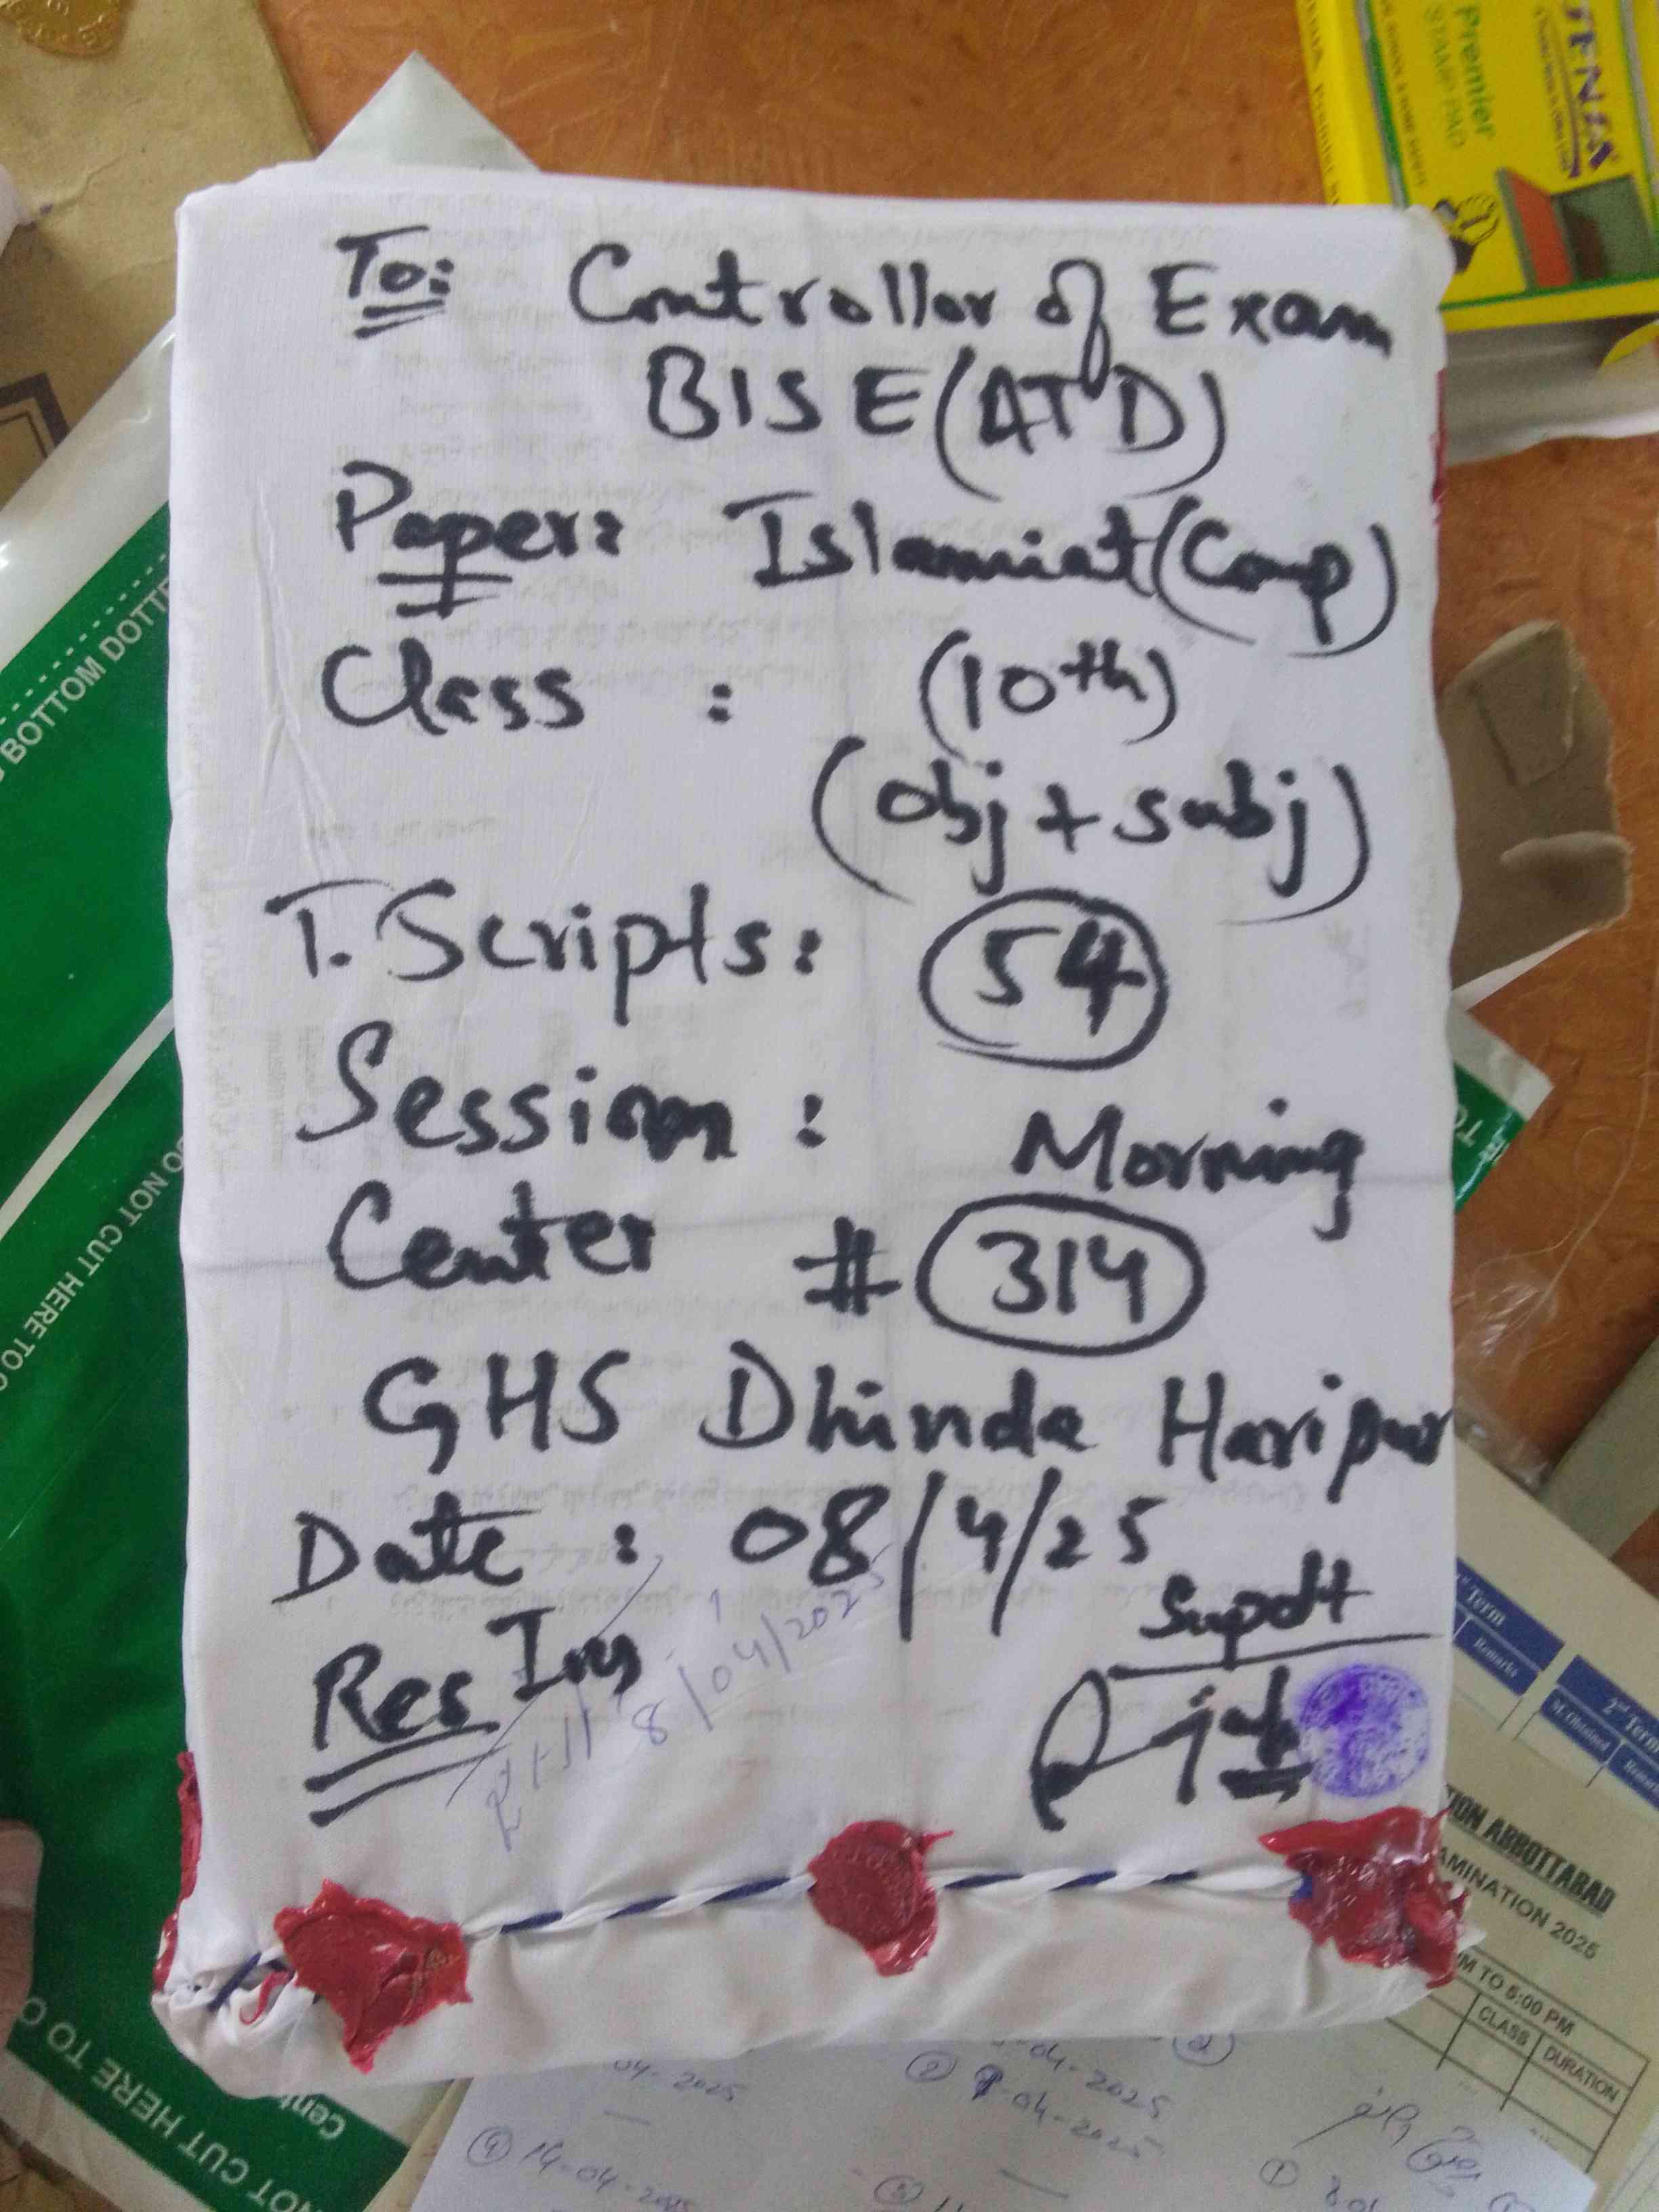 To: Controller of Exam
BISE (ATD)
Paper: Islamiat (Comp)
Class : (10th)
(obj + subj)
T. Scripts: 54
Session : Morning
Center # 314
GHS Dhinda Haripur
Date : 08/4/25
Supdt
Res Ins
8/04/2025
TENSA
Premier
STAMP PAD
BOTTOM DOTTE
DO NOT CUT HERE TO
NOT CUT HERE TO
Term
Remarks
2nd Term
M. Obtained
Remarks
TION ABBOTTABAD
AMINATION 2025
M TO 5:00 PM
CLASS
DURATION
04-2025
② 9-04-2025
-04-2025
④ 14-04-2025